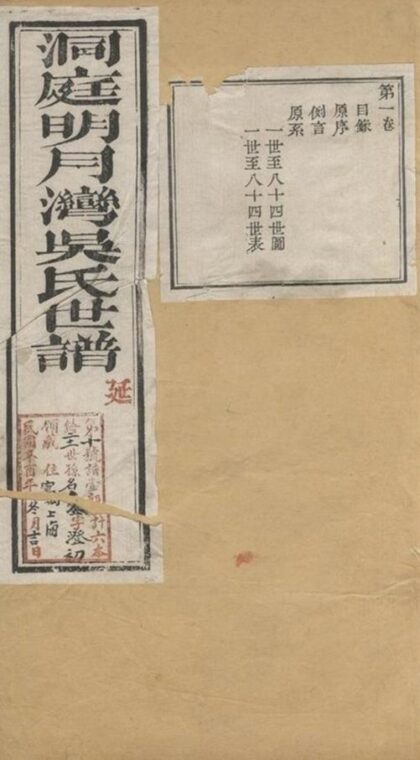 第一卷
目錄
原序
例言
原系
一世至八十四世圖
一世至八十四世表
洞庭明月灣吳氏世譜
延
第十號譜壹部計六本
給世孫名字澄初
領藏 住寓上海
民國辛酉年冬月吉日